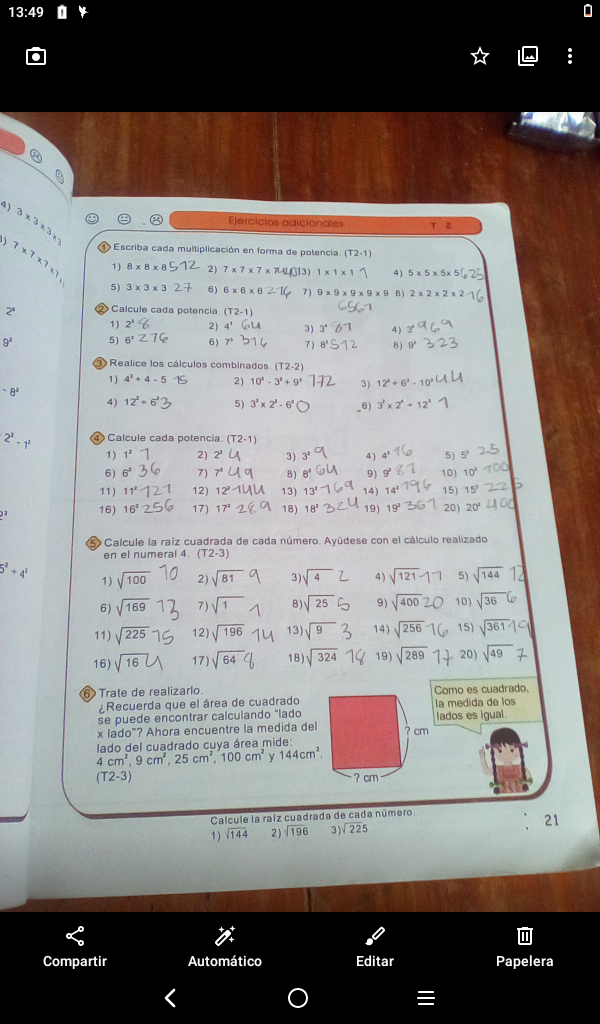 13:49
Ejercicios adicionales T 2
1 Escriba cada multiplicación en forma de potencia. (T2-1)
1) 8 x 8 x 8 512 2) 7 x 7 x 7 x 7 3) 1 x 1 x 1 1 4) 5 x 5 x 5 x 5 625
5) 3 x 3 x 3 27 6) 6 x 6 x 6 216 7) 9 x 9 x 9 x 9 8) 2 x 2 x 2 x 2 16
6561
2 Calcule cada potencia. (T2-1)
1) 2³ 8 2) 4³ 64 3) 3⁴ 81 4) 969
5) 6³ 276 6) 7³ 314 7) 8³ 512 8) 323
3 Realice los cálculos combinados. (T2-2)
1) 4² + 4 - 5 15 2) 10² - 3² + 9² 172 3) 12² + 6² - 10² 44
4) 12² ÷ 6² 3 5) 3² x 2² - 6² 0 6) 3² x 2⁴ ÷ 12² 1
4 Calcule cada potencia. (T2-1)
1) 1² 1 2) 2² 4 3) 3² 9 4) 4² 16 5) 5² 25
6) 6² 36 7) 7² 49 8) 8² 64 9) 9² 81 10) 10² 100
11) 11² 121 12) 12² 144 13) 13² 169 14) 14² 196 15) 15² 225
16) 16² 256 17) 17² 289 18) 18² 324 19) 19² 361 20) 20² 400
5 Calcule la raíz cuadrada de cada número. Ayúdese con el cálculo realizado
en el numeral 4. (T2-3)
1) √100 10 2) √81 9 3) √4 2 4) √121 11 5) √144 12
6) √169 13 7) √1 1 8) √25 5 9) √400 20 10) √36 6
11) √225 15 12) √196 14 13) √9 3 14) √256 16 15) √361 19
16) √16 4 17) √64 8 18) √324 18 19) √289 17 20) √49 7
6 Trate de realizarlo.
¿Recuerda que el área de cuadrado
se puede encontrar calculando "lado
x lado"? Ahora encuentre la medida del
lado del cuadrado cuya área mide:
4 cm², 9 cm², 25 cm², 100 cm² y 144cm².
(T2-3)
? cm
? cm
Como es cuadrado,
la medida de los
lados es igual.
Calcule la raíz cuadrada de cada número.
1) √144 2) √196 3)√225
21
4) 3 x 3 x 3 x 3
7 x 7 x 7 x 7
9²
- 8²
2² - 1²
5² ÷ 4²
Compartir Automático Editar Papelera